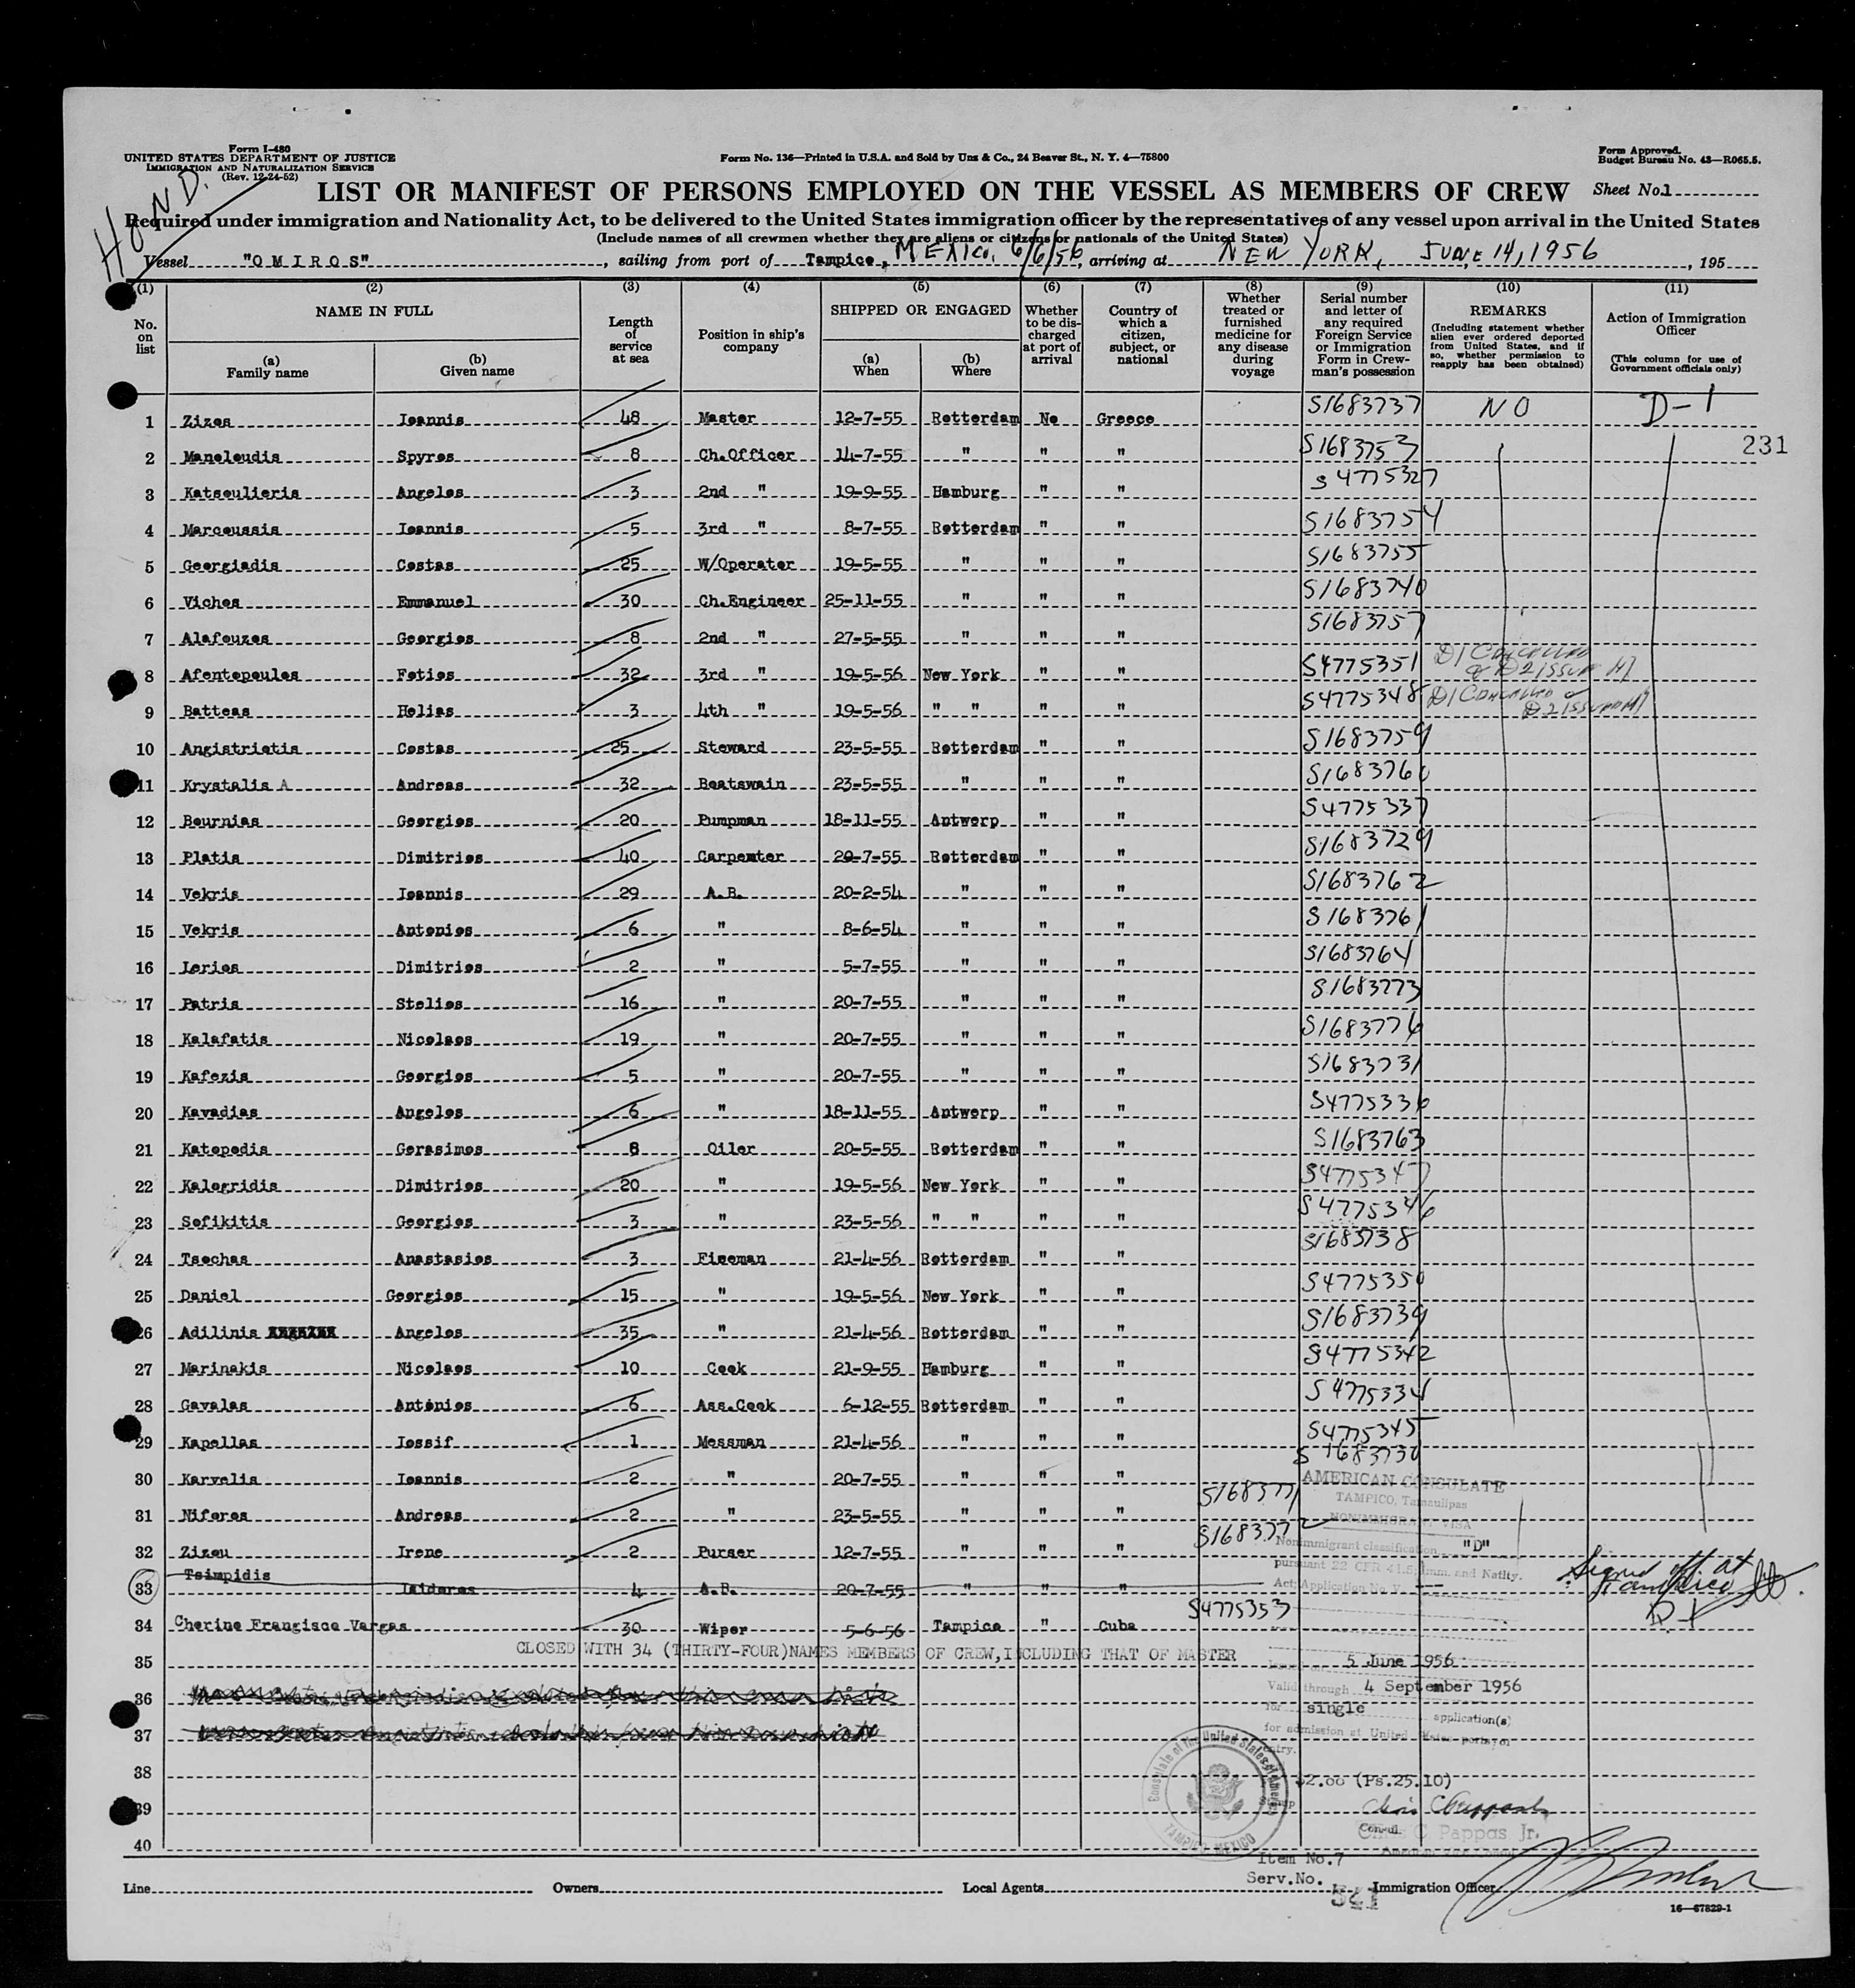 Form I-480
UNITED STATES DEPARTMENT OF JUSTICE
IMMIGRATION AND NATURALIZATION SERVICE
(Rev. 12-24-52)
Form No. 136—Printed in U.S.A. and Sold by Unz & Co., 24 Beaver St., N. Y. 4—75800
Form Approved.
Budget Bureau No. 43—R065.5.
LIST OR MANIFEST OF PERSONS EMPLOYED ON THE VESSEL AS MEMBERS OF CREW Sheet No. 1
Required under immigration and Nationality Act, to be delivered to the United States immigration officer by the representatives of any vessel upon arrival in the United States
(Include names of all crewmen whether they are aliens or citizens or nationals of the United States)
Vessel "OMIROS", sailing from port of Tampico, MEXICO, 6/6/56, arriving at NEW YORK, JUNE 14, 1956, 195
(1) (2) (3) (4) (5) (6) (7) (8) (9) (10) (11)
No. on list
NAME IN FULL
(a) Family name
(b) Given name
Length of service at sea
Position in ship's company
SHIPPED OR ENGAGED
(a) When
(b) Where
Whether to be discharged at port of arrival
Country of which a citizen, subject, or national
Whether treated or furnished medicine for any disease during voyage
Serial number and letter of any required Foreign Service or Immigration Form in Crewman's possession
REMARKS
(Including statement whether alien ever ordered deported from United States, and if so, whether permission to reapply has been obtained)
Action of Immigration Officer
(This column for use of Government officials only)
1 Zizos Ioannis 48 Master 12-7-55 Rotterdam No Greece S1683737 NO D-1
231
2 Manoloudis Spyros 8 Ch.Officer 14-7-55 " " " S1683753
3 Katsoulieris Angelos 3 2nd " 19-9-55 Hamburg " " S4775327
4 Marcoussis Ioannis 5 3rd " 8-7-55 Rotterdam " " S1683754
5 Georgiadis Costas 25 W/Operator 19-5-55 " " " S1683755
6 Vichos Emmanuel 30 Ch.Engineer 25-11-55 " " " S1683740
7 Alafouzos Georgios 8 2nd " 27-5-55 " " " S1683757
8 Afentopoulos Fotios 32 3rd " 19-5-56 New York " " S4775351
9 Batteas Helias 3 4th " 19-5-56 " " " " S4775348
10 Angistriotis Costas 25 Steward 23-5-55 Rotterdam " " S1683759
11 Krystalis A Andreas 32 Boatswain 23-5-55 " " " S1683760
12 Bournias Georgios 20 Pumpman 18-11-55 Antwerp " " S4775337
13 Platis Dimitrios 40 Carpenter 20-7-55 Rotterdam " " S1683729
14 Vekris Ioannis 29 A.B. 20-2-54 " " " S1683762
15 Vekris Antonios 6 " 8-6-54 " " " S1683761
16 Lerios Dimitrios 2 " 5-7-55 " " " S1683764
17 Patris Stelios 16 " 20-7-55 " " " S1683773
18 Kalafatis Nicolaos 19 " 20-7-55 " " " S1683776
19 Kafezis Georgios 5 " 20-7-55 " " " S1683731
20 Kavadias Angelos 6 " 18-11-55 Antwerp " " S4775336
21 Katopodis Gerasimos 8 Oiler 20-5-55 Rotterdam " " S1683763
22 Kalogridis Dimitrios 20 " 19-5-56 New York " " S4775347
23 Sofikitis Georgios 3 " 23-5-56 " " " " S4775346
24 Tsochas Anastasios 3 Fireman 21-4-56 Rotterdam " " S1683738
25 Daniel Georgios 15 " 19-5-56 New York " " S4775350
26 Adilinis Angelos 35 " 21-4-56 Rotterdam " " S1683739
27 Marinakis Nicolaos 10 Cook 21-9-55 Hamburg " " S4775342
28 Gavalas Antonios 6 Ass.Cook 6-12-55 Rotterdam " " S4775334
29 Kapellas Iossif 1 Messman 21-4-56 " " " S4775345
30 Karvelis Ioannis 2 " 20-7-55 " " " S1683730
31 Niforos Andreas 2 " 23-5-55 " " " S1683771
32 Zizou Irene 2 Purser 12-7-55 " " " S1683772
33 Tsimpidis Isidoros 4 A.B. 20-7-55 " " " Signed off at Tampico
34 Cherino Francisco Vargas 30 Wiper 5-6-56 Tampico " Cuba S4775353 D-1
CLOSED WITH 34 (THIRTY-FOUR)NAMES MEMBERS OF CREW,INCLUDING THAT OF MASTER
35
36
37
38
39
40
AMERICAN CONSULATE
TAMPICO, Tamaulipas
NONIMMIGRANT VISA
Nonimmigrant classification "D"
pursuant 22 CFR 41.5, Imm. and Natlty.
Act; Application No. V
Issued on 5 June 1956
Valid through 4 September 1956
for single application(s)
for admission at United States ports of
entry.
$2.00 (Ps.25.10)
Consulate of the United States of America
TAMPICO, MEXICO
Consul
Chris C Pappas, Jr.
Item No.7
Serv.No. 541
Line Owners Local Agents Immigration Officer
16—67829-1